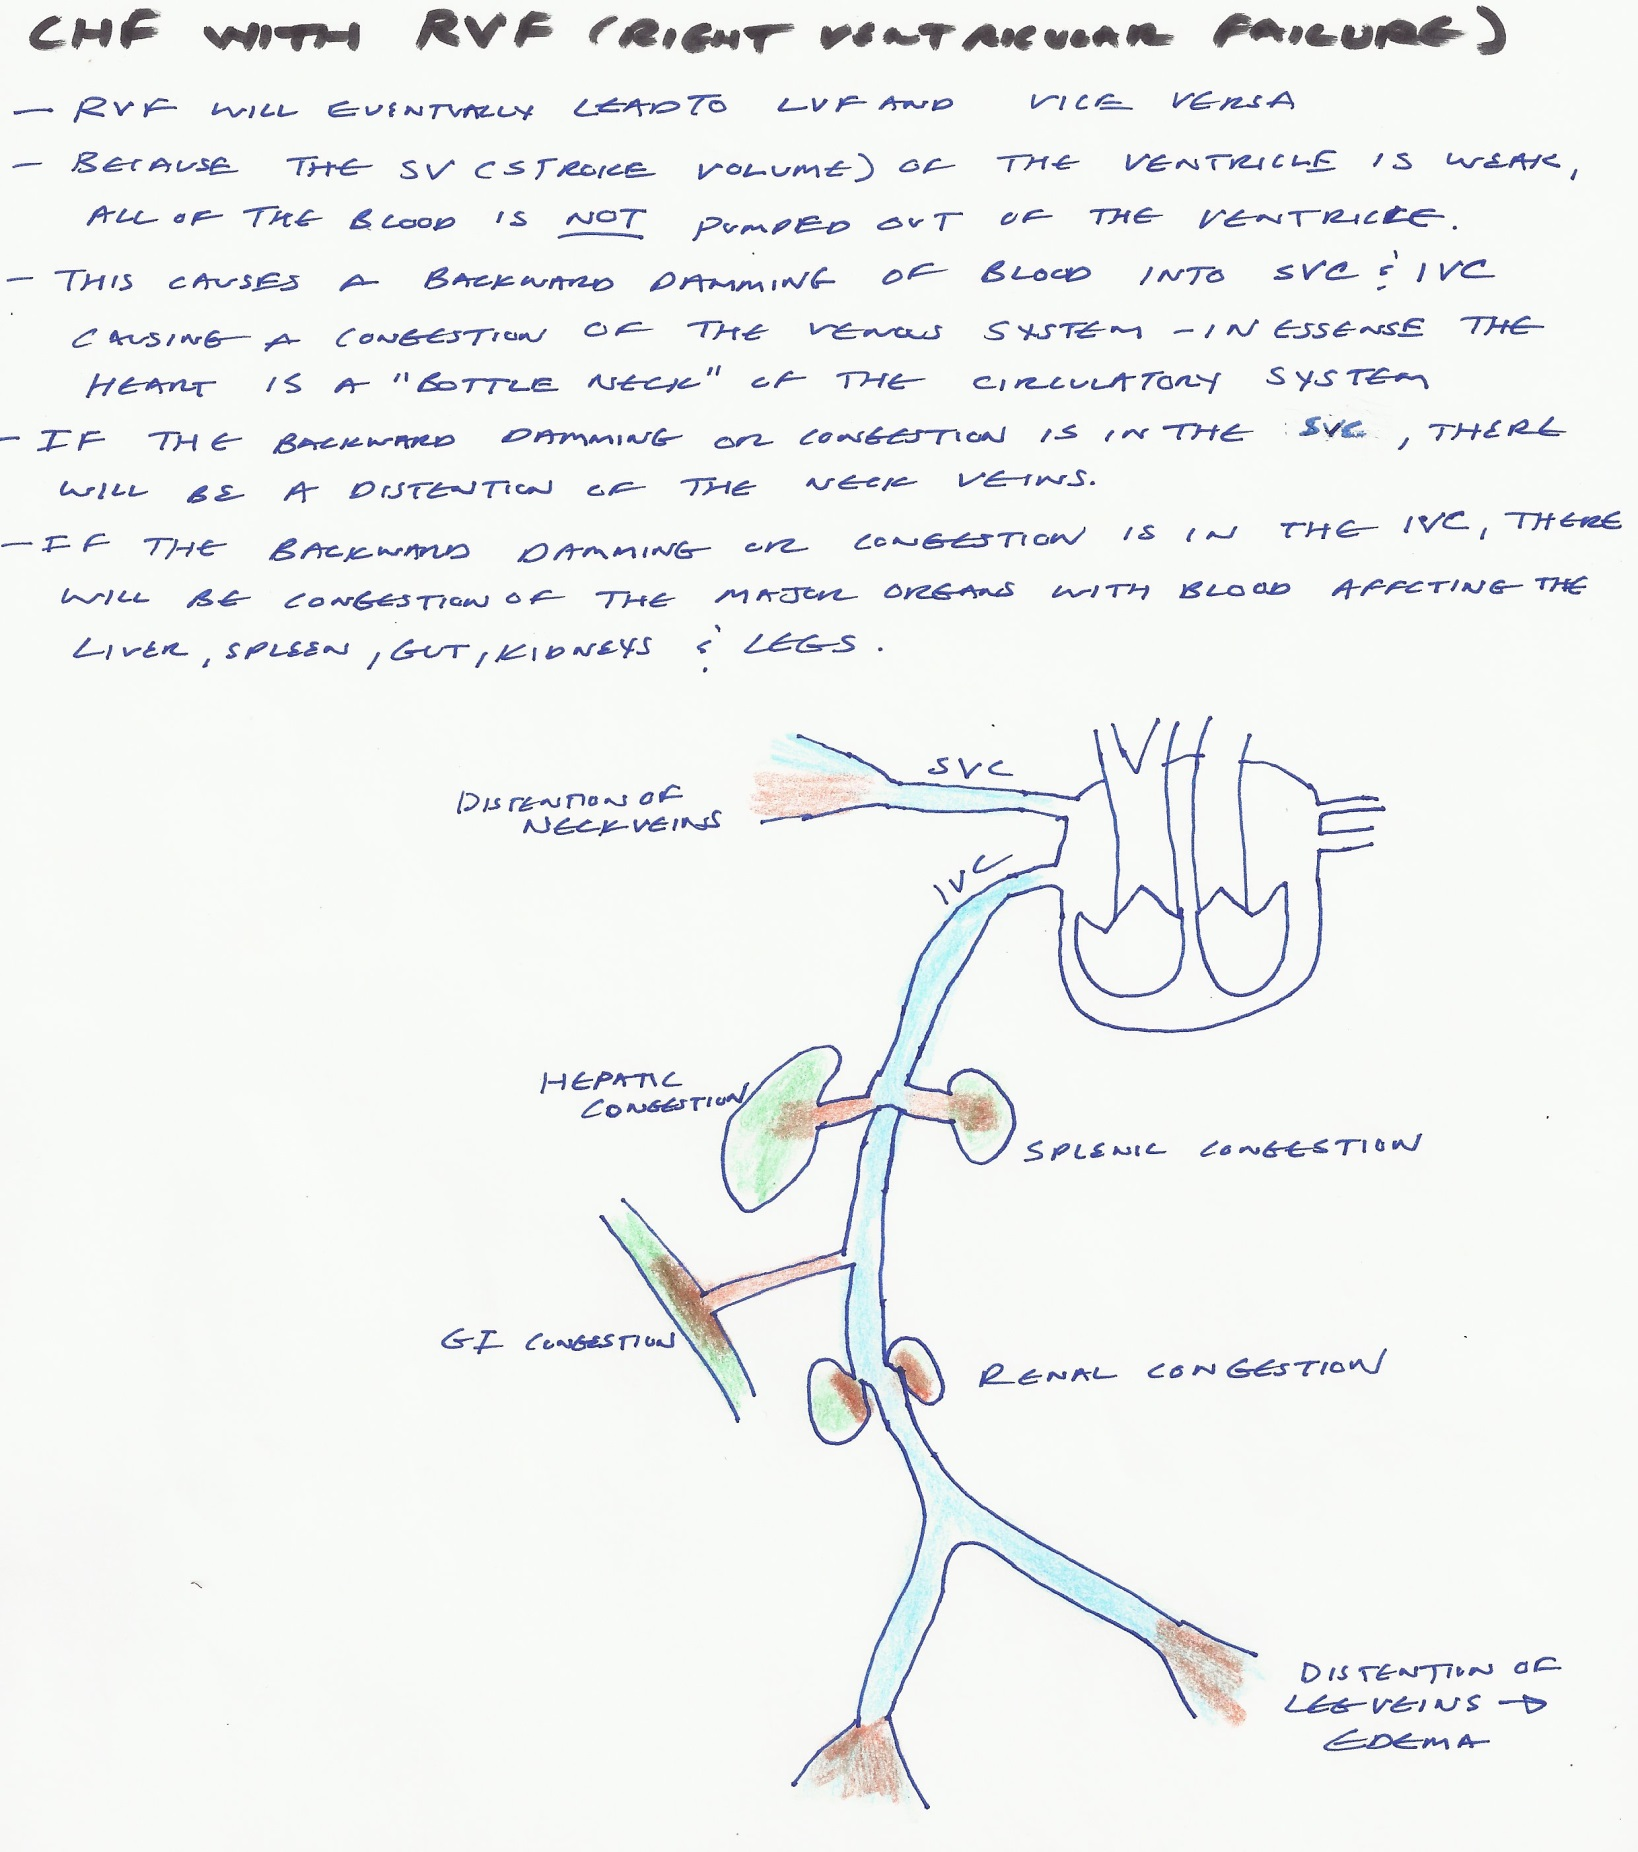 CHF WITH RVF (RIGHT VENTRICULAR FAILURE)
— RVF WILL EVENTUALLY LEAD TO LVF AND VICE VERSA
— BECAUSE THE SV (STROKE VOLUME) OF THE VENTRICLE IS WEAK,
ALL OF THE BLOOD IS NOT PUMPED OUT OF THE VENTRICLE.
— THIS CAUSES A BACKWARD DAMMING OF BLOOD INTO SVC & IVC
CAUSING A CONGESTION OF THE VENOUS SYSTEM - IN ESSENSE THE
HEART IS A "BOTTLE NECK" OF THE CIRCULATORY SYSTEM
- IF THE BACKWARD DAMMING OR CONGESTION IS IN THE SVC, THERE
WILL BE A DISTENTION OF THE NECK VEINS.
- IF THE BACKWARD DAMMING OR CONGESTION IS IN THE IVC, THERE
WILL BE CONGESTION OF THE MAJOR ORGANS WITH BLOOD AFFCTING THE
LIVER, SPLEEN, GUT, KIDNEYS & LEGS.
SVC
DISTENTION OF
NECK VEINS
IVC
HEPATIC
CONGESTION
SPLENIC CONGESTION
GI CONGESTION
RENAL CONGESTION
DISTENTION OF
LEG VEINS →
EDEMA